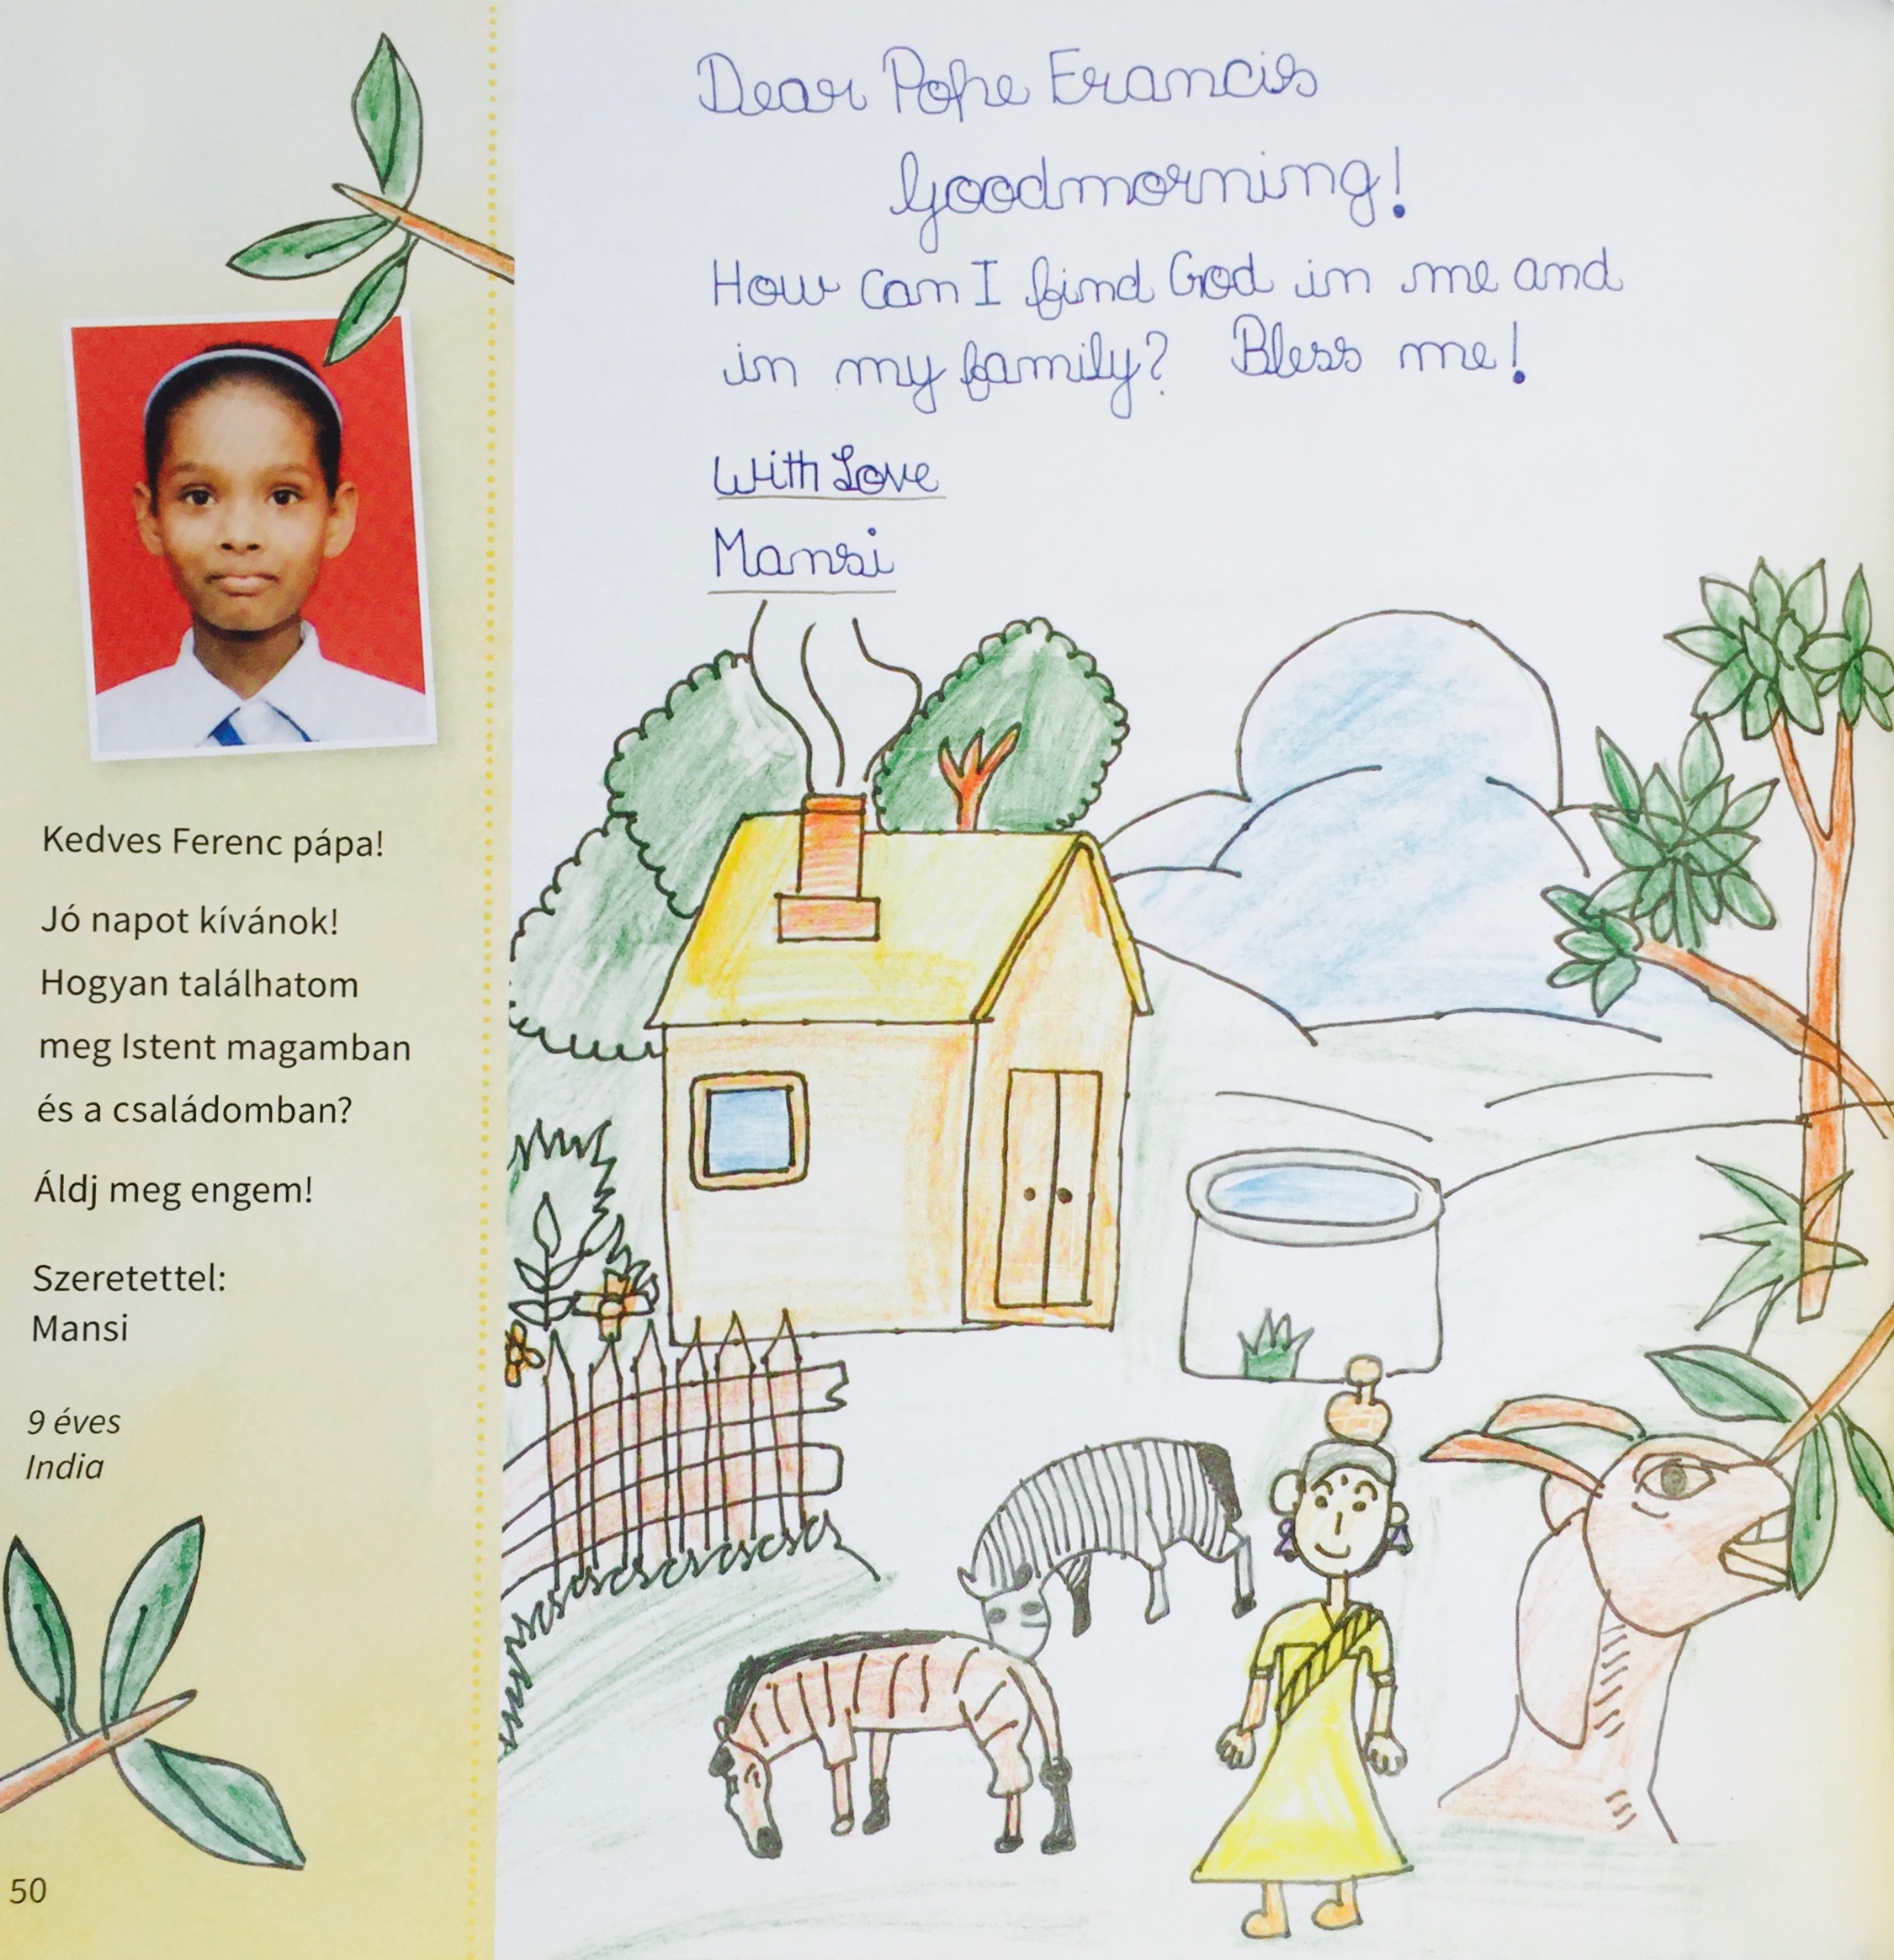 Dear Pope Francis
Goodmorning!
How can I find God in me and
in my family? Bless me!
With Love
Mansi
Kedves Ferenc pápa!
Jó napot kívánok!
Hogyan találhatom
meg Istent magamban
és a családomban?
Áldj meg engem!
Szeretettel:
Mansi
9 éves
India
50